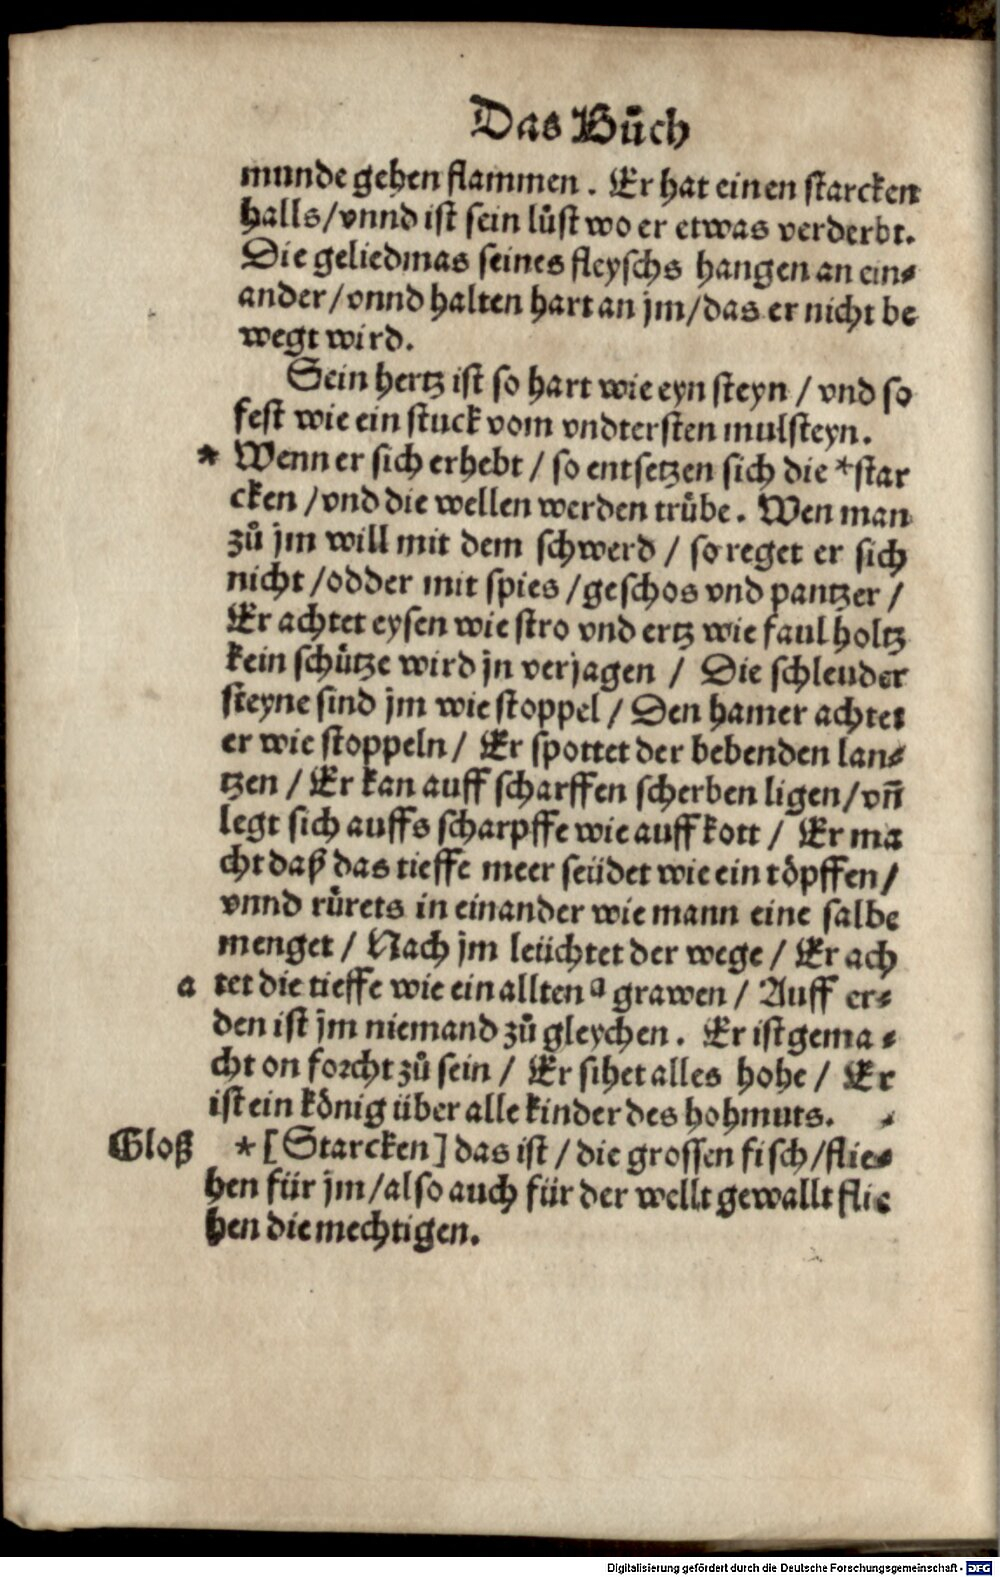 Das Bůch
munde gehen flammen. Er hat einen starcken
halls/vnnd ist sein lůst wo er etwas verderbt.
Die geliedmas seines fleyschs hangen an ein⸗
ander/vnnd halten hart an jm/das er nicht be
wegt wird.
Sein hertz ist so hart wie eyn steyn / vnd so
fest wie ein stuck vom vndtersten mulsteyn.
* Wenn er sich erhebt / so entsetzen sich die *star
cken /vnd die wellen werden trůbe. Wen man
zů jm will mit dem schwerd / so reget er sich
nicht /odder mit spies /geschos vnd pantzer /
Er achtet eysen wie stro vnd ertz wie faul holtz
kein schůtze wird jn verjagen / Die schleuder
steyne sind jm wie stoppel / Den hamer achtet
er wie stoppeln / Er spottet der bebenden lan⸗
tzen / Er kan auff scharffen scherben ligen/vñ
legt sich auffs scharpffe wie auff kott / Er ma
cht daß das tieffe meer seüdet wie ein töpffen/
vnnd růrets in einander wie mann eine salbe
menget / Nach jm leüchtet der wege / Er ach
a tet die tieffe wie ein allten a grawen / Auff er⸗
den ist jm niemand zů gleychen. Er ist gema⸗
cht on forcht zů sein / Er sihet alles hohe / Er
ist ein könig über alle kinder des hohmuts.
Gloß * [Starcken] das ist / die grossen fisch/flie⸗
hen für jm/also auch für der wellt gewallt flie
hen die mechtigen.
Digitalisierung gefördert durch die Deutsche Forschungsgemeinschaft - DFG